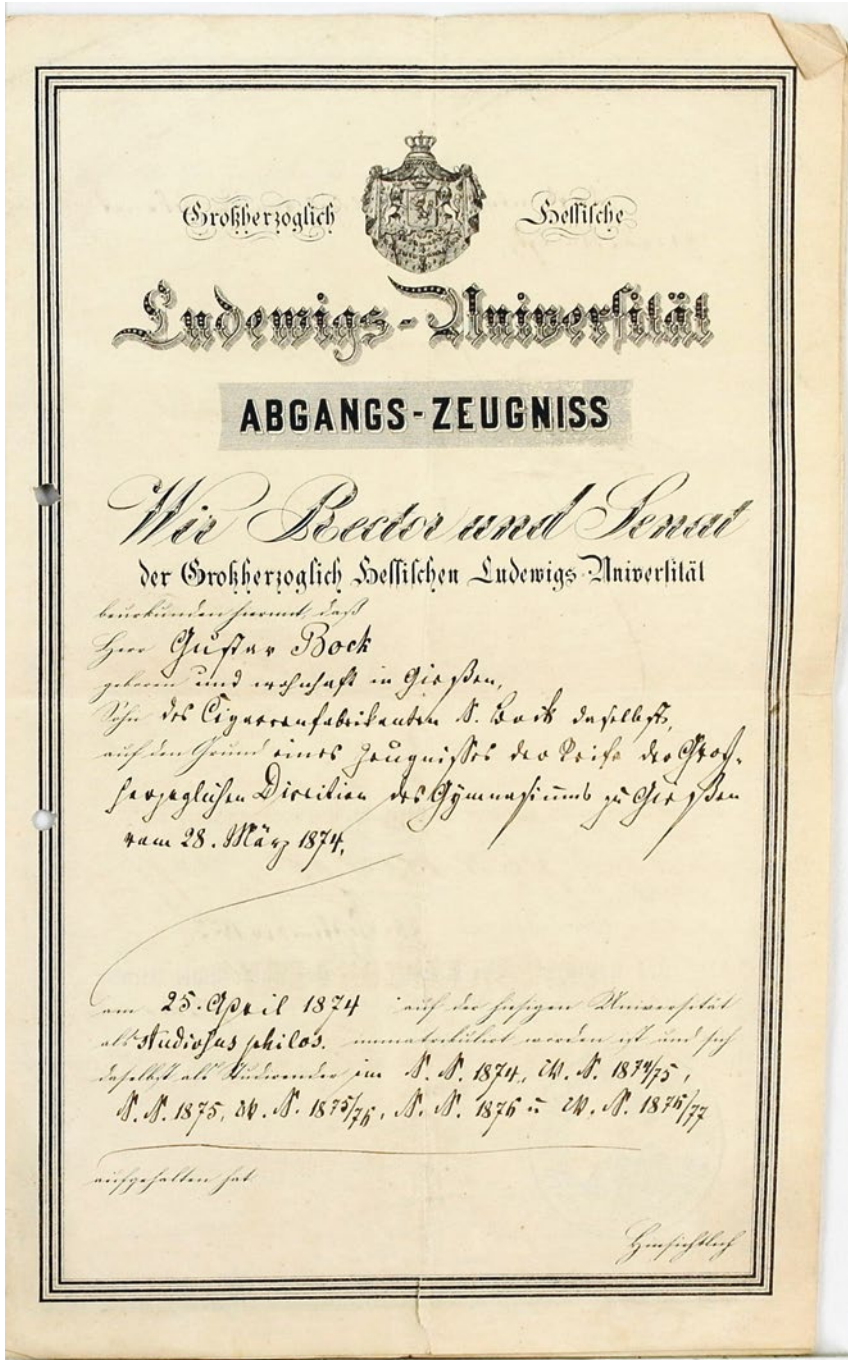 Großherzoglich Hessische
Ludewigs-Universität
ABGANGS-ZEUGNISS
Wir Rector und Senat
der Großherzoglich Hessischen Ludewigs-Universität
beurkunden hiermit, daß
Herr Gustav Bock
geboren und wohnhaft in Gießen,
Sohn des Cigarrenfabrikanten S. Bock daselbst,
auf den Grund eines Zeugnisses der Reife der Groß-
herzoglichen Direction des Gymnasiums zu Gießen
vom 28. März 1874,
am 25. April 1874 auf der hiesigen Universität
als studiosus philos. immatrikulirt worden ist und sich
daselbst als Studirender im S. S. 1874, W. S. 1874/75,
S. S. 1875, W. S. 1875/76, S. S. 1876 u W. S. 1876/77
aufgehalten hat.
Hinsichtlich